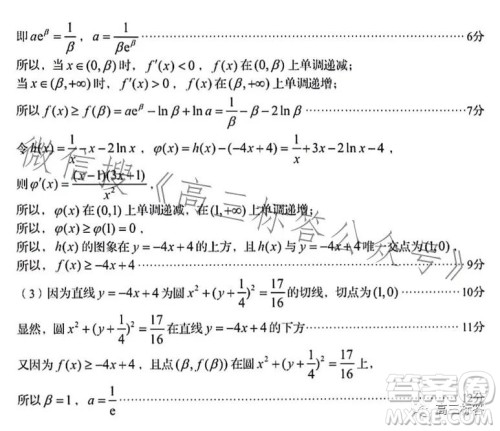 即 $ae^{\beta}=\frac{1}{\beta}$，$a=\frac{1}{\beta e^{\beta}}$ ……6分
所以，当 $x\in(0,\beta)$ 时，$f'(x)<0$，$f(x)$ 在 $(0,\beta)$ 上单调递减；
当 $x\in(\beta,+\infty)$ 时，$f'(x)>0$，$f(x)$ 在 $(\beta,+\infty)$ 上单调递增；
所以 $f(x)\geq f(\beta)=ae^{\beta}-\ln\beta+\ln a=\frac{1}{\beta}-\beta-2\ln\beta$ ……7分
令 $h(x)=\frac{1}{x}-x-2\ln x$，$\varphi(x)=h(x)-(-4x+4)=\frac{1}{x}+3x-2\ln x-4$，
则 $\varphi'(x)=\frac{(x-1)(3x+1)}{x^2}$，
所以，$\varphi(x)$ 在 $(0,1)$ 上单调递减，在 $(1,+\infty)$ 上单调递增；
所以，$\varphi(x)\geq\varphi(1)=0$，
所以，$h(x)$ 的图象在 $y=-4x+4$ 的上方，且 $h(x)$ 与 $y=-4x+4$ 唯一交点为 $(1,0)$，
所以，$f(x)\geq-4x+4$ ……9分
（3）因为直线 $y=-4x+4$ 为圆 $x^2+(y+\frac{1}{4})^2=\frac{17}{16}$ 的切线，切点为 $(1,0)$ ……10分
显然，圆 $x^2+(y+\frac{1}{4})^2=\frac{17}{16}$ 在直线 $y=-4x+4$ 的下方 ……11分
又因为 $f(x)\geq-4x+4$，且点 $(\beta,f(\beta))$ 在圆 $x^2+(y+\frac{1}{4})^2=\frac{17}{16}$ 上，
所以 $\beta=1$，$a=\frac{1}{e}$ ……12分
微信搜《高三标答公众号》
高三标答
答案圈
MXQE.COM